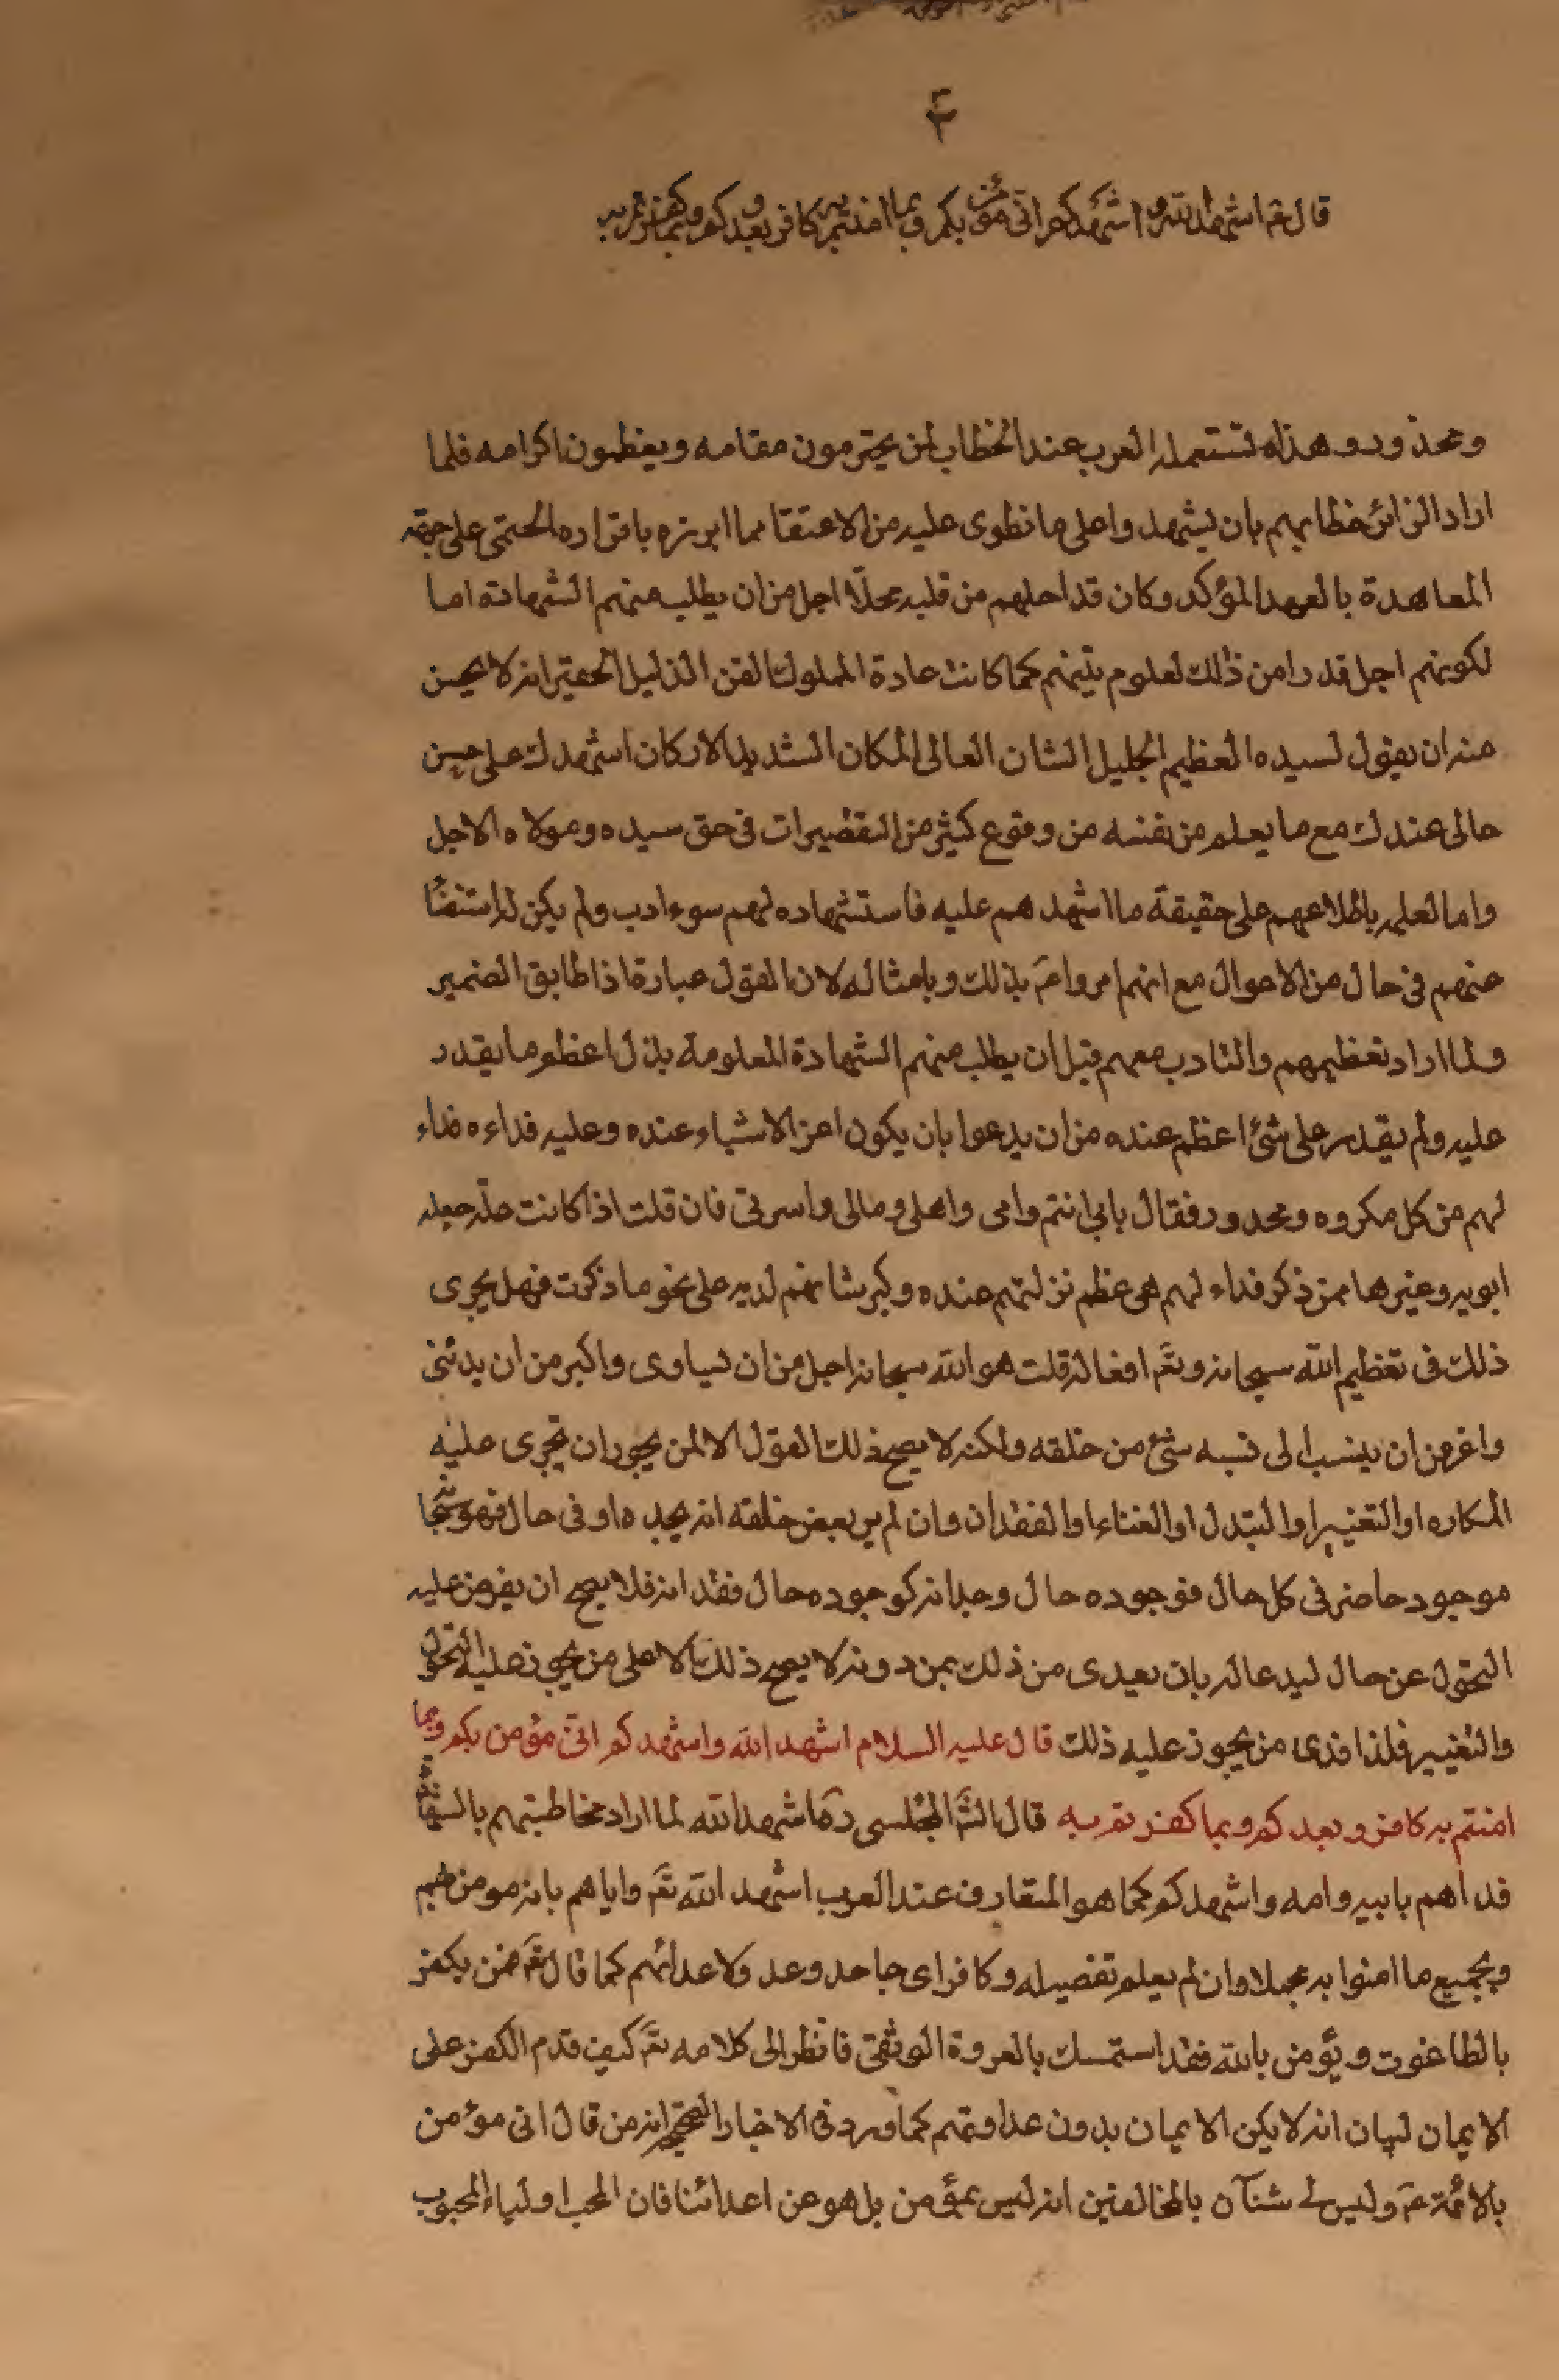 قال ع اشهد الله و اشهدكم انى مؤمن بكم و بما امنتم به كافر بعدوكم و بما كفرتم به
ومحذور وهذا تستعمله العرب عند الخطاب لمن يحترمون مقامه ويعظمون اكرامه فلما
اراد الزائر خطابهم بان يشهدوا على ما نطوى عليه من الاعتقا مما ابرزه باقراره الحتمى على جهة
المعاهدة بالعهد المؤكد وكان قد احلهم من قلبه محلّا اجل من ان يطلب منهم الشهادة اما
لكونهم اجل قدرا من ذلك لعلوم تبتهم كما كانت عادة المملوك القن الذليل الحقير انه لا يحسن
منه ان يقول لسيده العظيم الجليل الشان العالى المكان الشديد الاركان اشهدك على حسن
حالى عندك مع ما يعلم من نفسه من وقوع كثير من التقصيرات فى حق سيده ومولاه الاجل
واما لعلمه باطلاعهم على حقيقة ما اشهدهم عليه فاستشهاده لهم سوء ادب ولم يكن له استغنا
عنهم فى حال من الاحوال مع انهم امروا ع بذلك وبامثاله لان القول عبارة اذا طابق الضمير
ولما اراد تعظيمهم والتادب معهم قبل ان يطلب منهم الشهادة المعلومة بذل اعظم ما يقدر
عليه ولم يقدر على شئ اعظم عنده من ان يدعوا بان يكون اعز الاشياء عنده وعليه فداءه فداء
لهم من كل مكروه ومحدور فقال بابى انتم وامى واهلى ومالى واسرتى فان قلت اذا كانت علّة جعله
ابويه وغيرها ممن ذكر فداء لهم هى عظم نزلتهم عنده وكبر شانهم لديه على نحو ما ذكرت فهل يجرى
ذلك فى تعظيم الله سبحانه وتعَ افعاله قلت هو الله سبحانه اجل من ان يساوى واكبر من ان يدنى
واعز من ان ينسب الى نسبه شئ من خلقه ولكنه لا يصح ذلك القول الا لمن يجوز ان تجرى عليه
المكاره او التغيير او التبدل او الفناء او الفقدان وان لم ير بعض خلقه انه يجده او فى حال فهو سبحا
موجود حاضر فى كل حال فوجوده حال وجدانه كوجوده حال فقدانه فلا يصح ان يفرض عليه
التحول عن حال ليدعا له بان يعدى من ذلك بمن دونه لا يصح ذلك الا على من يجوز عليه التحول
والتغيير فلذا فدى من يجوز عليه ذلك قال عليه السلام اشهد الله واشهدكم انى مؤمن بكم وبما
امنتم به كافر وبعدوكم وبما كفرتم به قال الش المجلسى ره اشهد الله لما اراد مخاطبتهم بالشهادة
فداهم بابيه وامه واشهدكم كما هو المتعارف عند العرب اشهد الله تعَ واياهم بانه مومن بهم
وبجميع ما امنوا به مجملا وان لم يعلم تفصيله وكافر اى جاحد وعد ولاعدائهم كما قال تعَ فمن يكفر
بالطاغوت ويؤمن بالله فقد استمسك بالعروة الوثقى فانظر الى كلامه تعَ كيف قدم الكفر على
الايمان لبيان انه لا يكن الايمان بدون عداوتهم كما ورد فى الاخبار الصحيحة انه من قال انى مؤمن
بالائمة ع وليس لى شنآن بالمخالفين انه ليس بمؤمن بل هو من اعدائنا فان المحب اولياء المحبوب